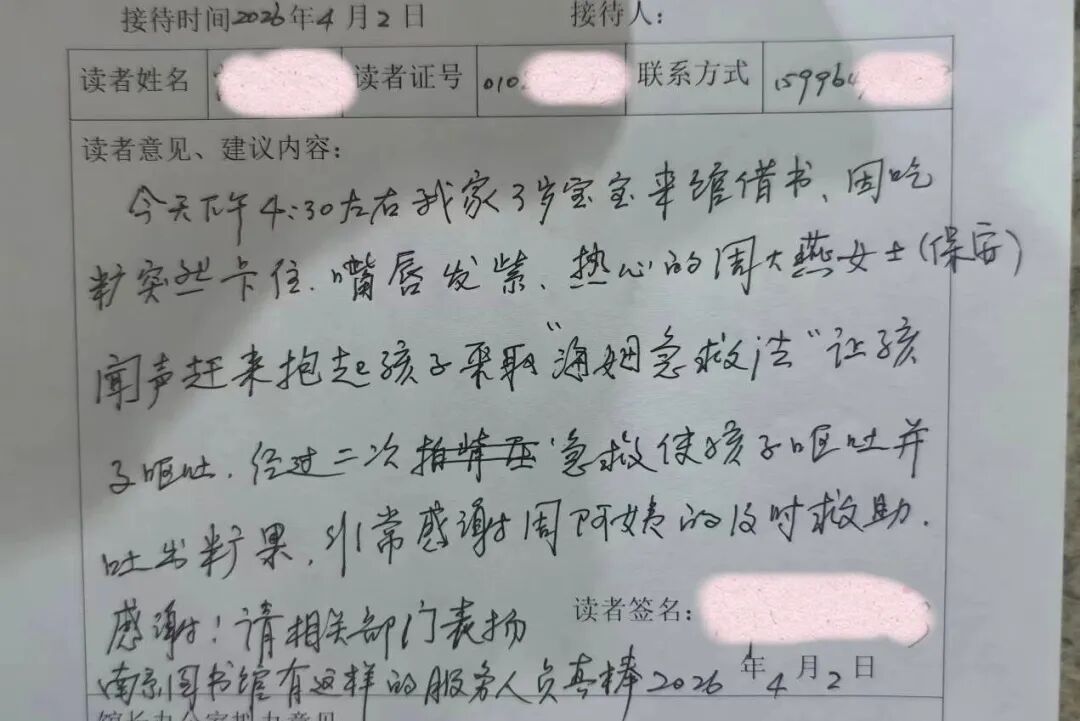 接待时间2026年4月2日 接待人:
读者姓名 读者证号 010 联系方式 159964
读者意见、建议内容:
今天下午4:30左右我家3岁宝宝来馆借书、因吃
糖突然卡住.嘴唇发紫、热心的周大燕女士(保安)
闻声赶来抱起孩子采取"海姆急救法"让孩
子呕吐.经过二次 急救使孩子呕吐并
吐出糖果,非常感谢周阿姨的及时救助.
感谢!请相关部门表扬 读者签名:
南京图书馆有这样的服务人员真棒 2026年4月2日